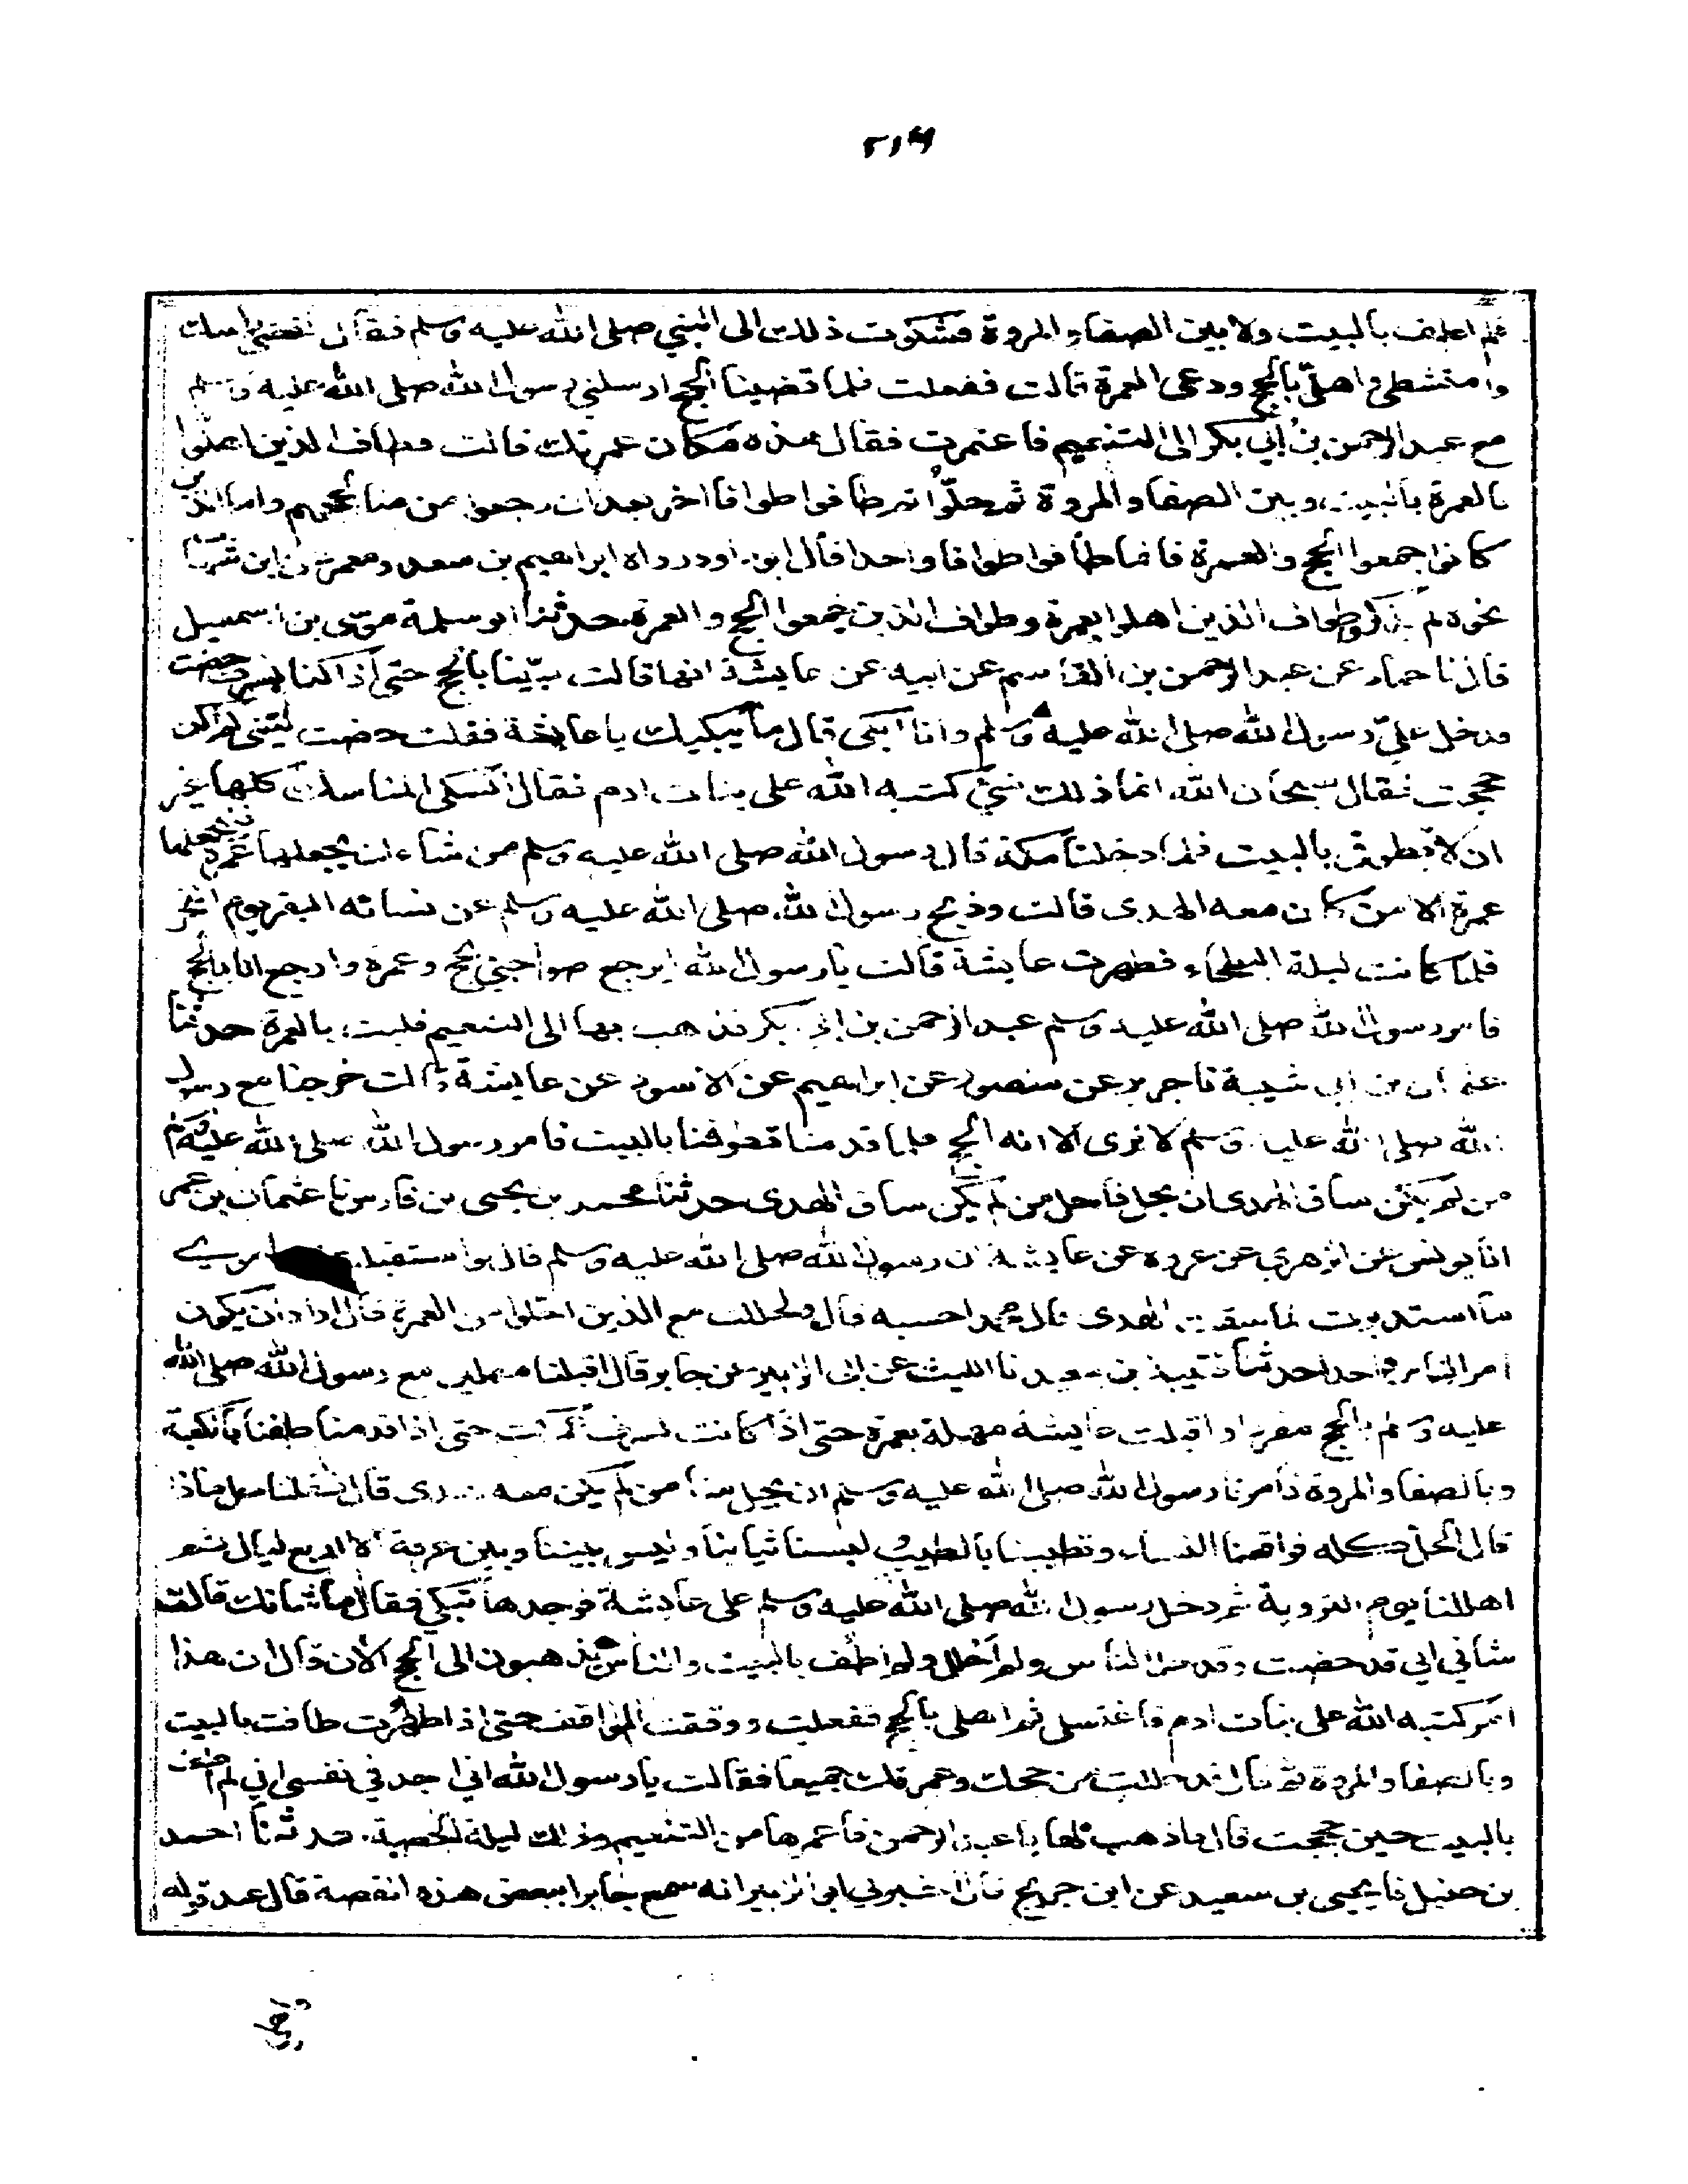 ٢١٤
فلم اطف بالبيت ولا بين الصفا والمروة فشكوت ذلك الى النبي صلى الله عليه وسلم فقال انقضي راسك
وامتشطي واهلي بالحج ودعي العمرة قالت ففعلت فلما قضينا الحج ارسلني رسول الله صلى الله عليه وسلم
مع عبد الرحمن بن ابي بكر الى التنعيم فاعتمرت فقال هذه مكان عمرتك قالت فطاف الذين اهلوا
بالعمرة بالبيت وبين الصفا والمروة ثم حلّوا ثم طافوا طوافا اخر بعد ان رجعوا من منا لحجهم واما الذين
كانوا جمعوا الحج والعمرة فانما طافوا طوافا واحدا قال ابو داود رواه ابراهيم بن سعد ومعمر عن ابن شهاب
نحوه لم يذكر وطواف الذين اهلوا بعمرة وطواف الذين جمعوا الحج والعمرة حدثنا ابو سلمة موسى بن اسمعيل
قال نا حماد عن عبد الرحمن بن القاسم عن ابيه عن عايشة انها قالت لبّينا بالحج حتى اذا كنا بسرف حضت
فدخل عليّ رسول الله صلى الله عليه وسلم وانا ابكى قال ما يبكيك يا عايشة فقلت حضت ليتني لم اكن
حججت فقال سبحان الله انما ذلك شيء كتبه الله على بنات ادم فقال انسكي المناسك كلها غير
ان لا تطوفي بالبيت فلما دخلنا مكة قال رسول الله صلى الله عليه وسلم من شاء ان يجعلها عمرة فليجعلها
عمرة الا من كان معه الهدى قالت وذبح رسول الله صلى الله عليه وسلم عن نسائه البقر يوم النحر
فلما كانت ليلة البطحاء فطهرت عايشة قالت يا رسول الله ايرجع صواحبي بحج وعمرة وارجع انا بالحج
فامر رسول الله صلى الله عليه وسلم عبد الرحمن بن ابي بكر فذهب بها الى التنعيم فلبت بالعمرة حدثنا
عثمان بن ابي شيبة نا جرير عن منصور عن ابراهيم عن الاسود عن عايشة قالت خرجنا مع رسول
الله صلى الله عليه وسلم لا نرى الا انه الحج فلما قدمنا تطوفنا بالبيت فامر رسول الله صلى الله عليه وسلم
من لم يكن ساق الهدى ان يحل فاحل من لم يكن ساق الهدى حدثنا محمد بن يحيى بن فارس نا عثمان بن عمر
انا يونس عن الزهري عن عروة عن عايشة ان رسول الله صلى الله عليه وسلم قال لو استقبلت من امري
ما استدبرت لما سقت الهدى قال محمد احسبه قال ولحللت مع الذين احلوا من العمرة قال اراد ان يكون
امر الناس واحدا حدثنا قتيبة بن سعيد نا الليث عن ابي الزبير عن جابر قال اقبلنا مهلين مع رسول الله صلى الله
عليه وسلم بالحج مفردا واقبلت عايشة مهلة بعمرة حتى اذا كانت بسرف عركت حتى اذا قدمنا طفنا بالكعبة
وبالصفا والمروة فامرنا رسول الله صلى الله عليه وسلم ان يحل منا من لم يكن معه هدى قال فقلنا حل ماذا
قال الحل كله فواقعنا النساء وتطيبنا بالطيب لبسنا ثيابنا وليس بيننا وبين عرفة الا اربع ليال ثم
اهللنا يوم التروية ثم دخل رسول الله صلى الله عليه وسلم على عايشة فوجدها تبكي فقال ما شانك قالت
شاني اني قد حضت وقد حل الناس ولم احلل ولم اطف بالبيت والناس يذهبون الى الحج الان قال ان هذا
امر كتبه الله على بنات ادم فاغتسلي ثم اهلي بالحج ففعلت ووقفت المواقف حتى اذا طهرت طافت بالبيت
وبالصفا والمروة ثم قال قد حللت من حجك وعمرتك جميعا فقالت يا رسول الله اني اجد في نفسي اني لم اطف
بالبيت حين حججت قال فاذهب بها يا عبد الرحمن فاعمرها من التنعيم وذلك ليلة الحصبة حدثنا احمد
بن حنبل نا يحيى بن سعيد عن ابن جريج قال اخبرني ابو الزبير انه سمع جابرا ببعض هذه القصة قال عند قوله